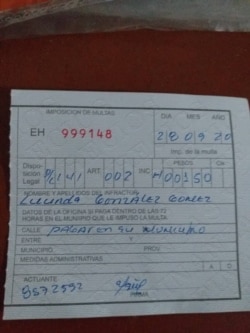 IMPOSICION DE MULTAS
DIA MES AÑO
EH 999148
28 09 20
Imp. de la multa
Dispo-
sición
Legal
141 ART. 002 INC.
PESOS Cs.
NOMBRE Y APELLIDOS DEL INFRACTOR
GONZALEZ GOMEZ
DATOS DE LA OFICINA SI PAGA DENTRO DE LAS 72
HORAS EN EL MUNIPIO QUE LE IMPUSO LA MULTA
CALLE PAGAR en su municipio
ENTRE Y
MUNICIPIO PROV.
MEDIDAS ADMINISTRATIVAS A D O
ACTUANTE
FIRMA